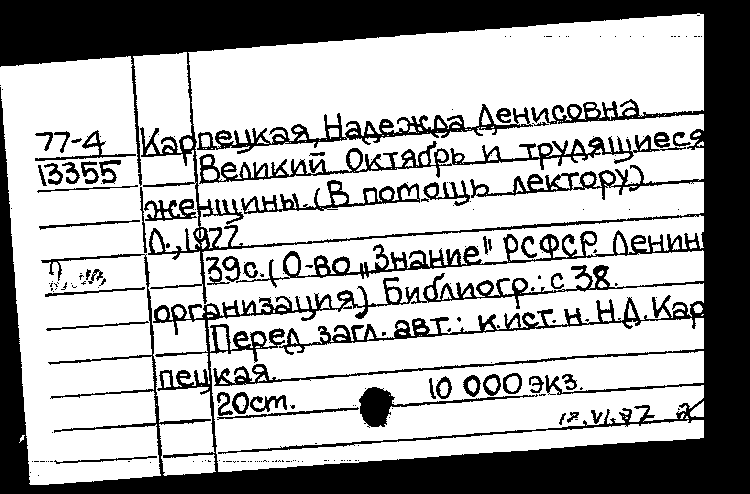 77-4 Карпецкая, Надежда Денисовна.
13355 Великий Октябрь и трудящиеся
женщины. (В помощь лектору).
Л., 1977.
39с. (О-во „Знание" РСФСР. Ленинг
организация). Библиогр.: с 38.
Перед загл. авт.: к.ист.н. Н.Д. Кар
пецкая.
20ст. 10 000 экз.